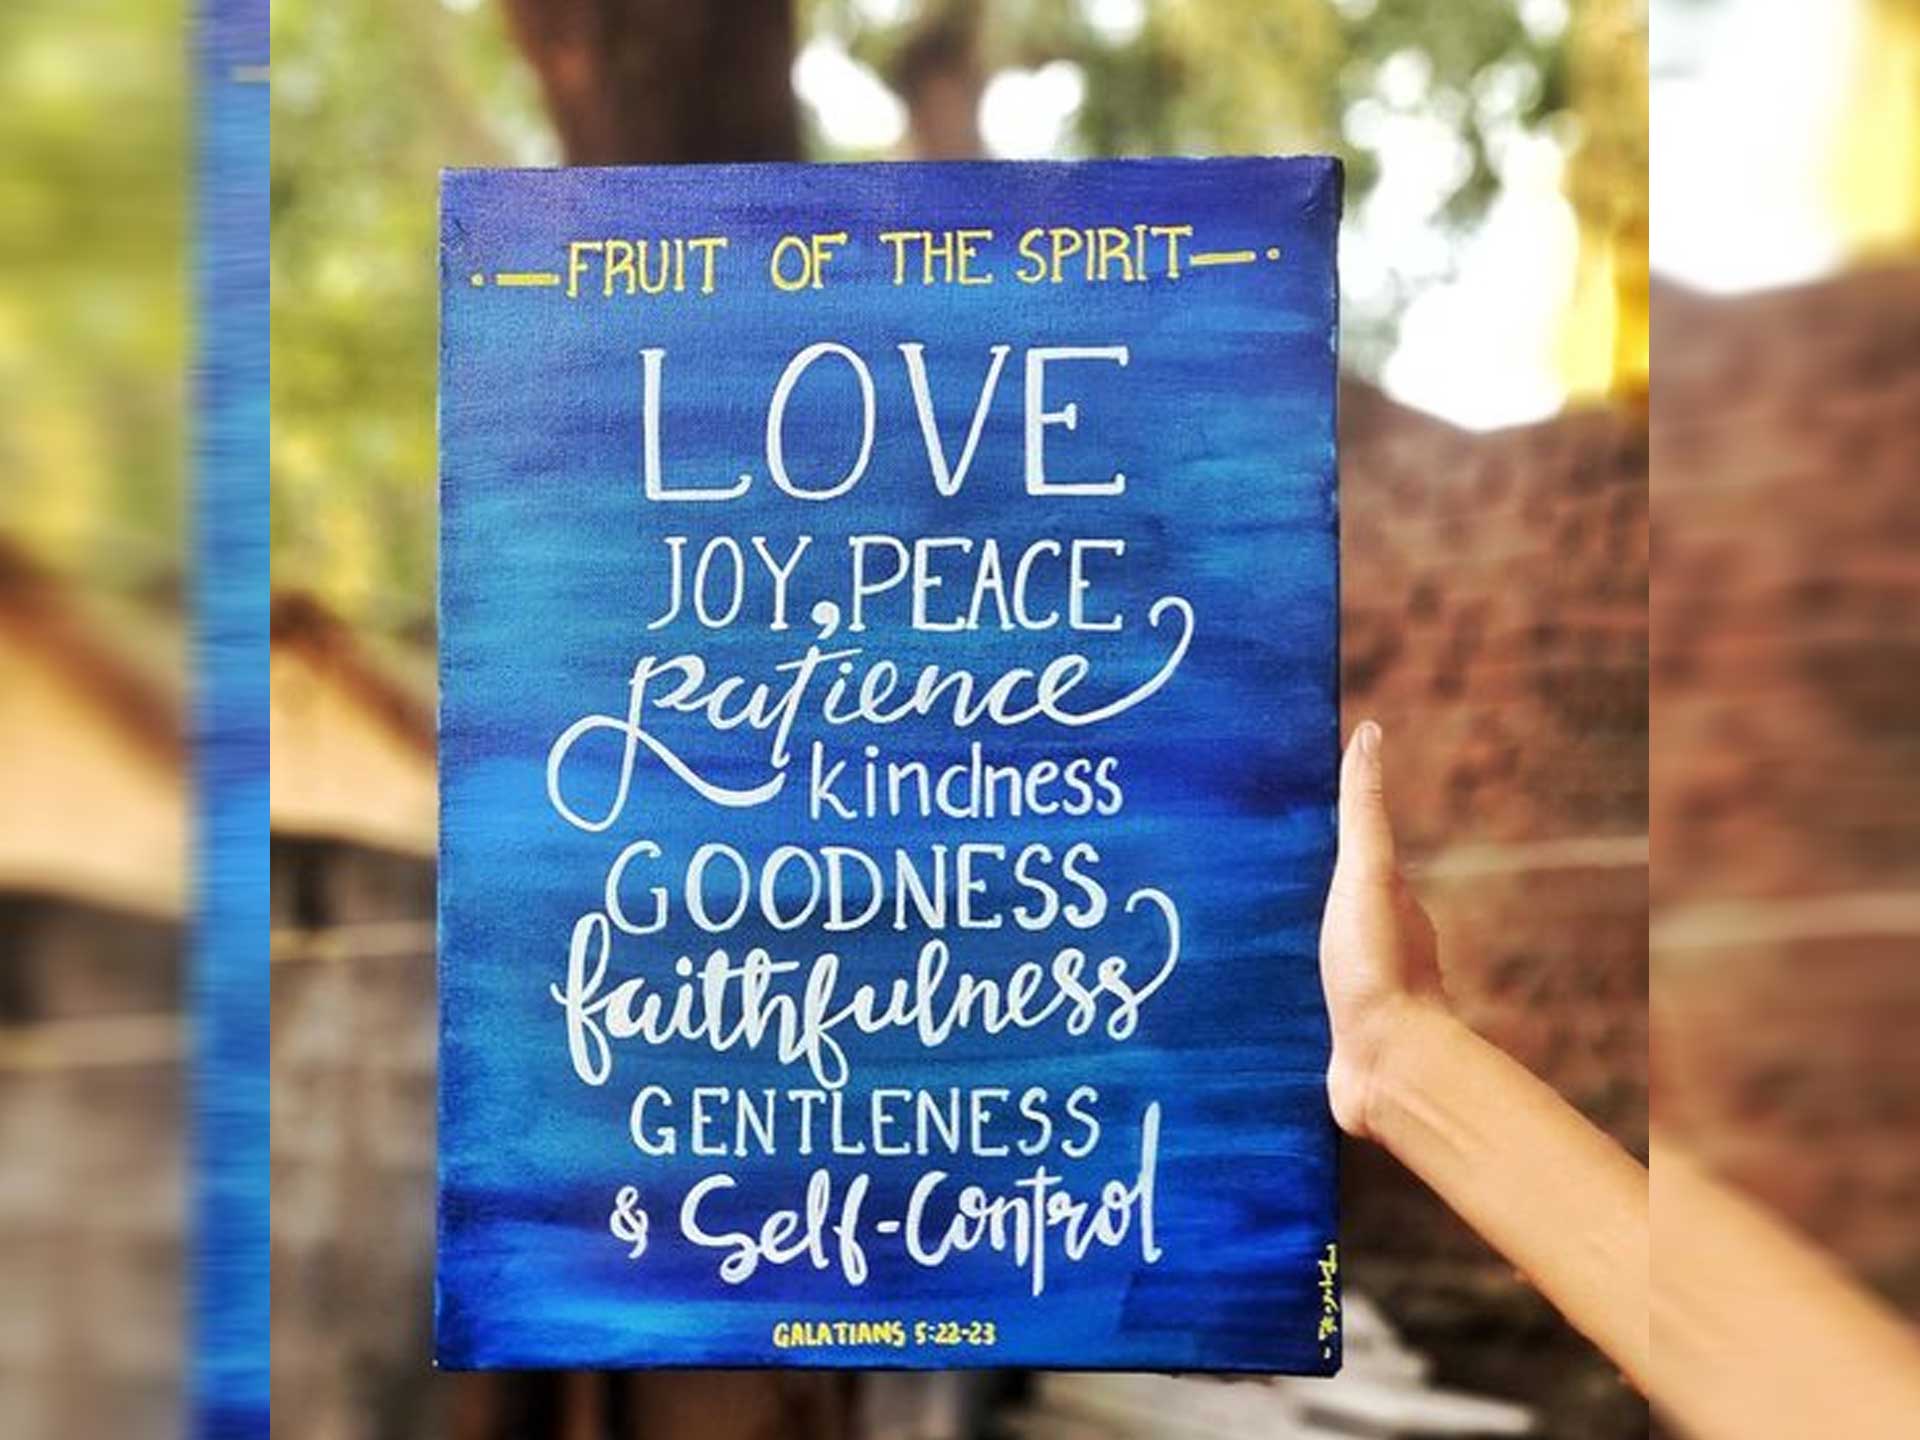 ·—FRUIT OF THE SPIRIT—·
LOVE
JOY, PEACE
patience
kindness
GOODNESS
faithfulness
GENTLENESS
& Self-Control
GALATIANS 5:22-23